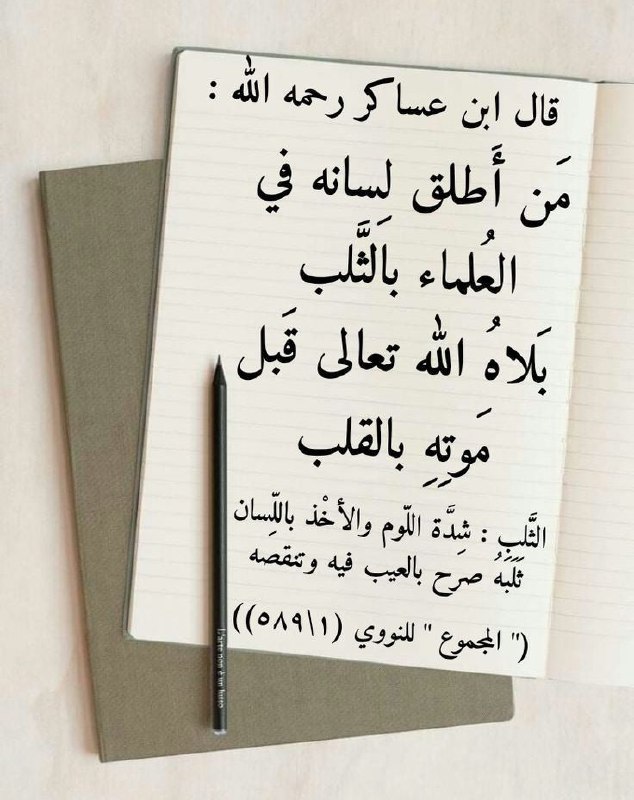 قال ابن عساكر رحمه الله :
مَن أَطلق لِسانه في
العُلماء بالَثَّلب
بَلاهُ الله تعالى قَبل
مَوتِهِ بالقلب
الثَّلب : شِدَّة اللّوم والأخْذ باللِّسان
ثَلَبَهُ صرح بالعيب فيه وتنقصه
(" المجموع " للنووي (١\٥٨٩))
L'arte non è un lusso